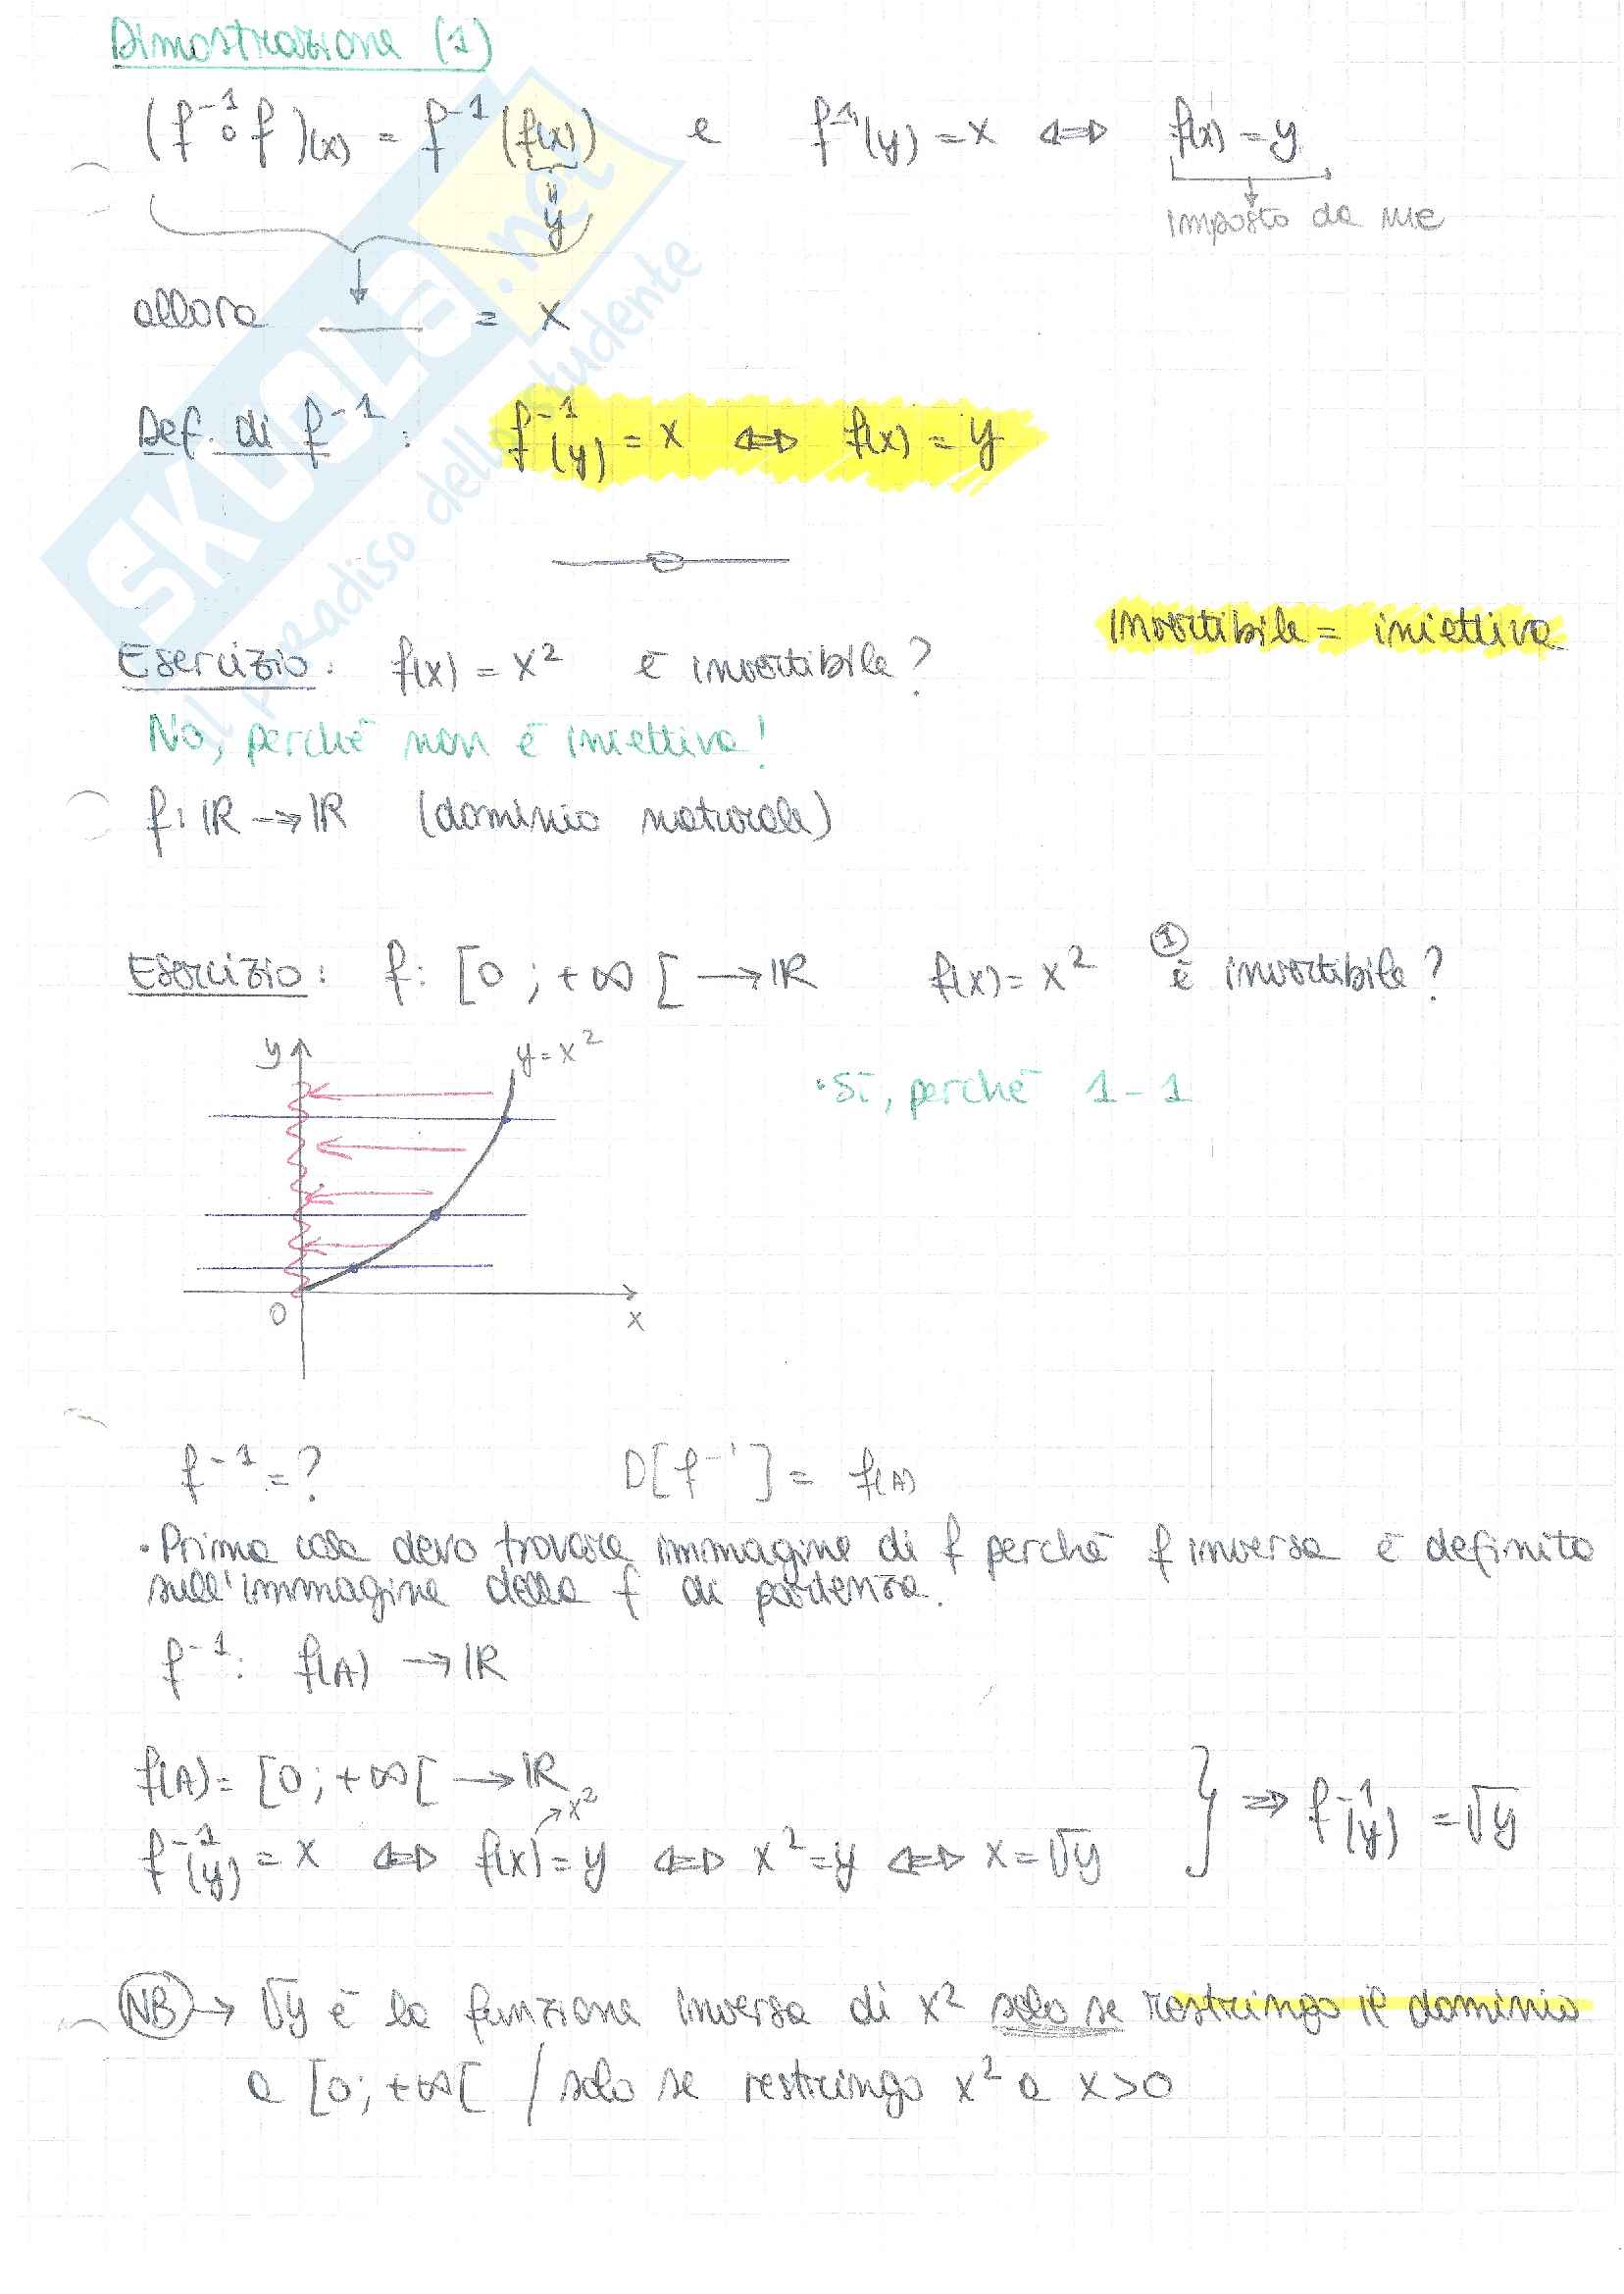 Dimostrazione (1)
(f⁻¹∘f)(x) = f⁻¹(f(x)) e f⁻¹(y) = x ⇔ f(x) = y
"
y
imposto da me
allora ___ = x
Def. di f⁻¹: f⁻¹(y) = x ⇔ f(x) = y
Invertibile = iniettiva
Esercizio: f(x) = x² è invertibile?
No, perché non è iniettiva!
f: ℝ → ℝ (dominio naturale)
Esercizio: f: [0; +∞[ → ℝ f(x) = x² ① è invertibile?
y y = x²
• Sì, perché 1-1
0 x
f⁻¹ = ? D[f⁻¹] = f(A)
• Prima cosa devo trovare immagine di f perché f inversa è definita
sull'immagine della f di partenza.
f⁻¹: f(A) → ℝ
f(A) = [0; +∞[ → ℝ
x²
f⁻¹(y) = x ⇔ f(x) = y ⇔ x² = y ⇔ x = √y } ⇒ f⁻¹(y) = √y
NB → √y è la funzione inversa di x² solo se restringo il dominio
a [0; +∞[ / solo se restringo x² a x>0
SKUOLA.net
il paradiso dello studente